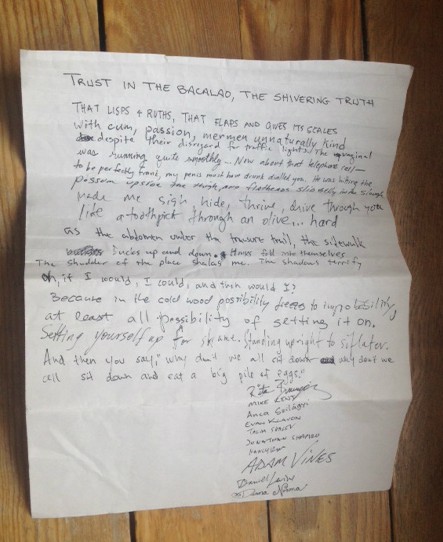 TRUST IN THE BACALAO, THE SHIVERING TRUTH
THAT LISPS + RUTHS, THAT FLAPS AND GIVES ITS SCALES
with cum, passion, mermen unnaturally kind
despite their disregard for traffic lights. The original
was running quite smoothly – Now about that telephone call –
to be perfectly frank, my penis must have drunk dialed you. He was like the
possum upside
made me sigh, hide, thrive, drive through you
like a toothpick through an olive... hard
as the abdomen under the treasure trail, the sidewalk
bucks up and down. fall into themselves
The shudder of the place shakes me. The shadows terrify
Oh, if I would, I could, and then would I?
Because in the cold wood possibility freezes to improbability,
at least all possibility of setting it on.
Setting yourself up for shame. Standing upright to
And then you say, "why don't we all sit down why don't we
all sit down and eat a big pile of eggs."
Rita
MIKE
Anca
Evan
JONATHAN SHAPIRO
ADAM VINES
Daniel
Dana